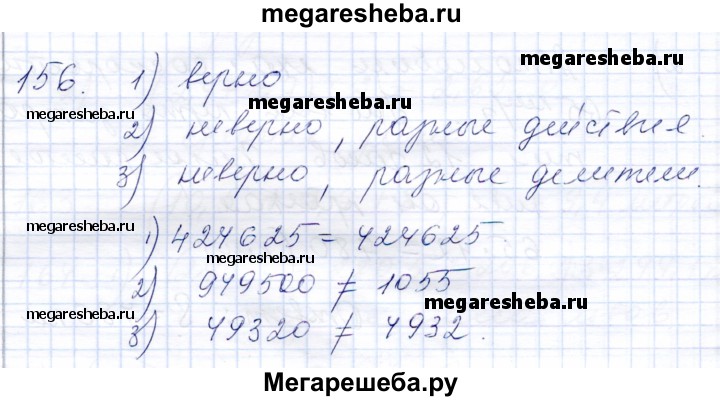 megaresheba.ru
156. 1) верно
megaresheba.ru
megaresheba.ru
megaresheba.ru
2) неверно, разные действия.
3) неверно, разные делители.
megaresheba.ru
1) 424625 = 424625
2) 949500 ≠ 1055
megaresheba.ru
megaresheba.ru
3) 49320 ≠ 4932.
Мегарешеба.ру